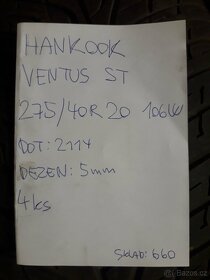 HANKOOK
VENTUS ST
275/40R20 106W
DOT: 2117
DEZEN: 5mm
4ks
SKLAD: 660
Bazoš.cz